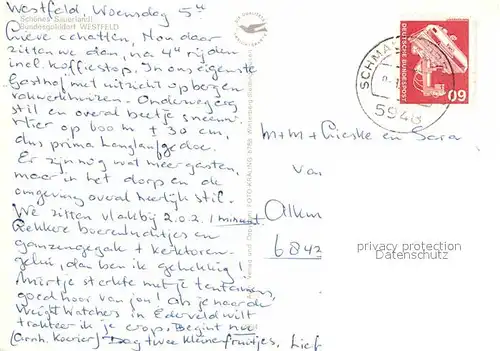 Westfeld, Woensdag 5 u
Schönes Sauerland!
Bundesgolddorf WESTFELD
Lieve schatten, Nou daar
zitten we dan, na 4 u rijden
incl. koffiestop. In ons eigenste
Gasthof met uitzicht op bergen
vakwerkhuizen. Onderweg
stil en overal beetje sneeuw.
Hier op 800 m ± 30 cm,
dus prima langlaufgedoe.
Er zijn nog wat meer gasten,
maar in het dorp en de
omgeving overal heerlijk stil.
We zitten vlakbij z.o.z. 1 minuut
Lekkere boerenluchtjes en
ganzengegak + kerktoren-
gelui, dan ben ik gelukkig!
Mirtje sterkte met je tentamens,
goed hoor van jou! Als je naar de
Weight Watchers in Ederveld wilt
trakteer ik je erop. Begint nou!
(Arnh. Koerier) Dag twee kleine fruitjes, Lief
M+M + Lieske en Sara
van
6842
SCHMA
5948
DEUTSCHE BUNDESPOST
60
privacy protection
watermark